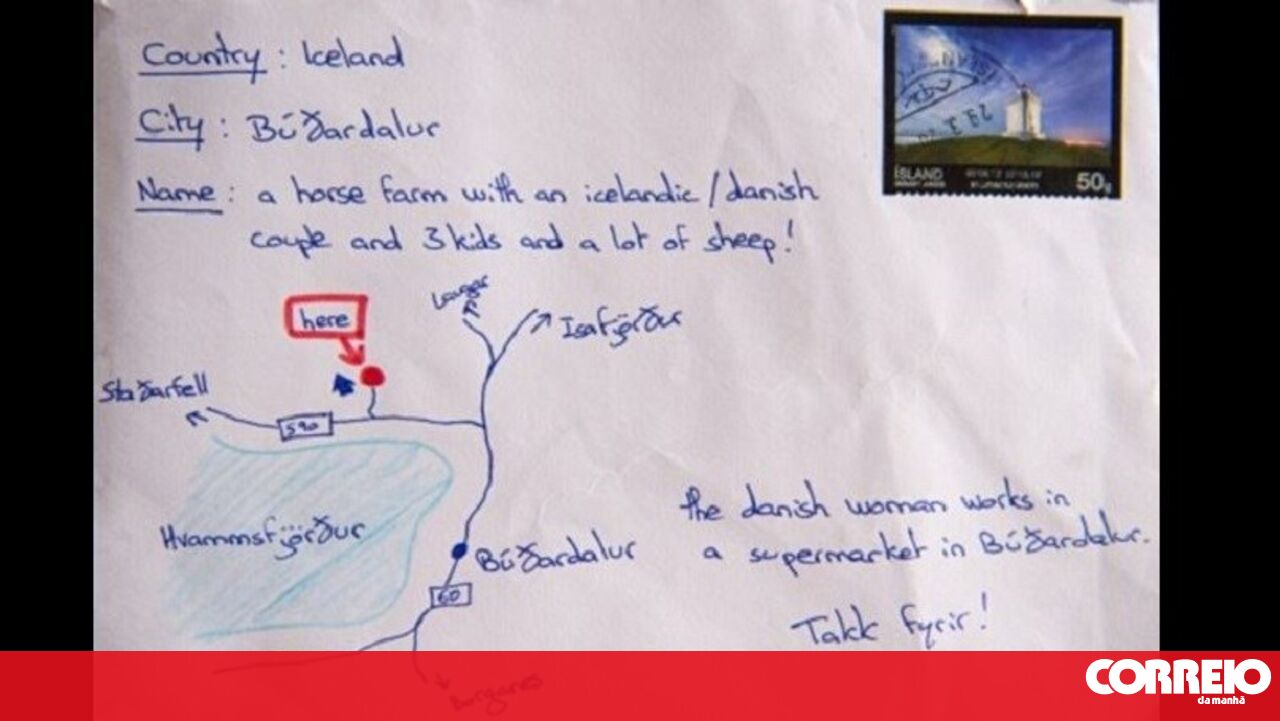 Country : Iceland
City : Búðardalur
Name : a horse farm with an icelandic / danish
couple and 3 kids and a lot of sheep!
ÍSLAND
50g
here
Laugar
Isafjörður
Staðarfell
590
Hvammsfjörður
Búðardalur
60
the danish woman works in
a supermarket in Búðardalur.
Takk fyrir!
Borganes
CORREIO
da manhã